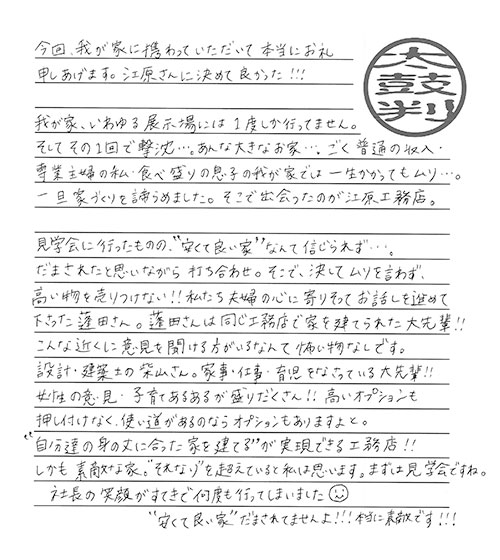 今回、我が家に携わっていただいて本当にお礼
申しあげます。江原さんに決めて良かった!!!
太鼓判
我が家、いわゆる展示場には1度しか行ってません。
そしてその1回で撃沈…。あんな大きなお家…、ごく普通の収入・
専業主婦の私・食べ盛りの息子の我が家では一生かかってもムリ…。
一旦家づくりを諦めました。そこで出会ったのが江原工務店。
見学会に行ったものの、"安くて良い家"なんて信じられず…。
だまされたと思いながら打ち合わせ。そこで、決してムリを言わず、
高い物を売りつけない!!私たち夫婦の心に寄りそってお話しを進めて
下さった蓮田さん。蓮田さんは同じ工務店で家を建てられた大先輩!!
こんな近くに意見を聞ける方がいるなんて怖い物なしです。
設計・建築士の柴山さん。家事・仕事・育児をなさっている大先輩!!
女性の意見・子育てあるあるが盛りだくさん!!高いオプションも
押し付けなく、使い道があるのならオプションもありますよと。
"自分達の身の丈に合った家を建てる"が実現できる工務店!!
しかも素敵な家。"それなり"を超えていると私は思います。まずは見学会ですね。
社長の笑顔がすてきで何度も行ってしまいました☺
"安くて良い家"だまされてませんよ!!!本当に素敵です!!!